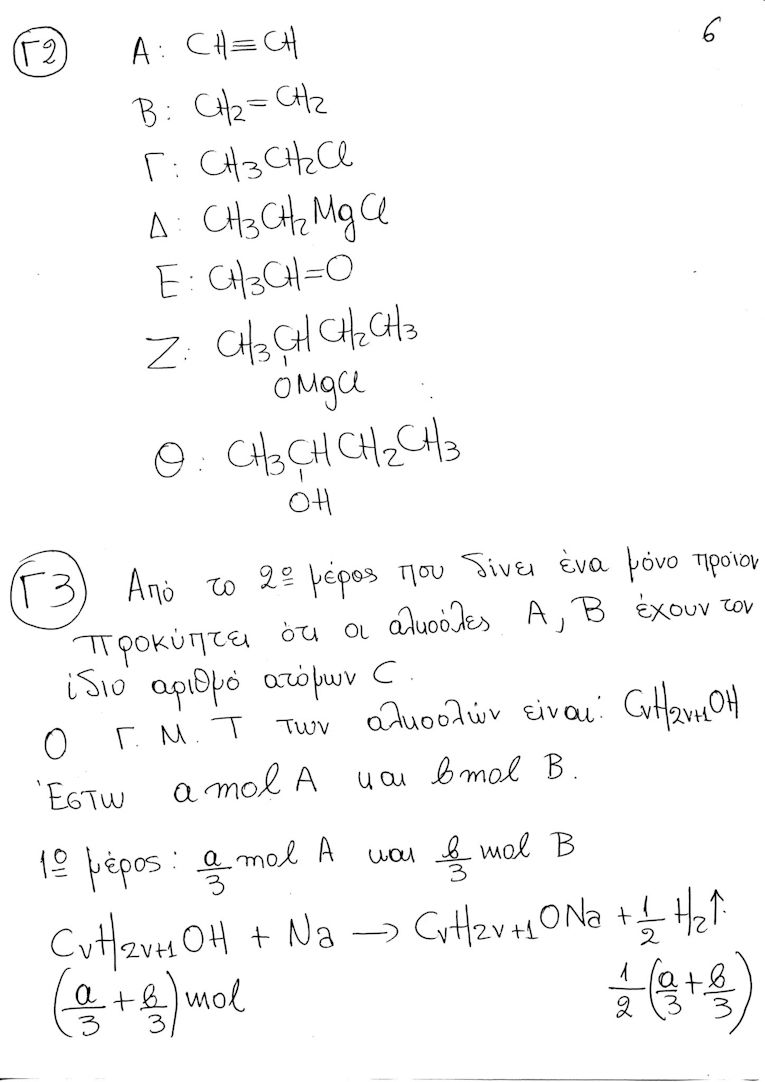 6
Γ2 Α: CH≡CH
Β: CH2=CH2
Γ: CH3CH2Cl
Δ: CH3CH2MgCl
Ε: CH3CH=O
Ζ: CH3CHCH2CH3
OMgCl
Θ: CH3CHCH2CH3
OH
Γ3 Από το 2º μέρος που δίνει ένα μόνο προϊον
προκύπτει ότι οι αλκοόλες Α, Β έχουν τον
ίδιο αριθμό ατόμων C.
Ο Γ.Μ.Τ των αλκοολών είναι: CνH2ν+1OH
Έστω a mol A και b mol B.
1º μέρος: a/3 mol A και b/3 mol B
CνH2ν+1OH + Na → CνH2ν+1ONa + 1/2 H2↑
(a/3 + b/3) mol 1/2 (a/3 + b/3)